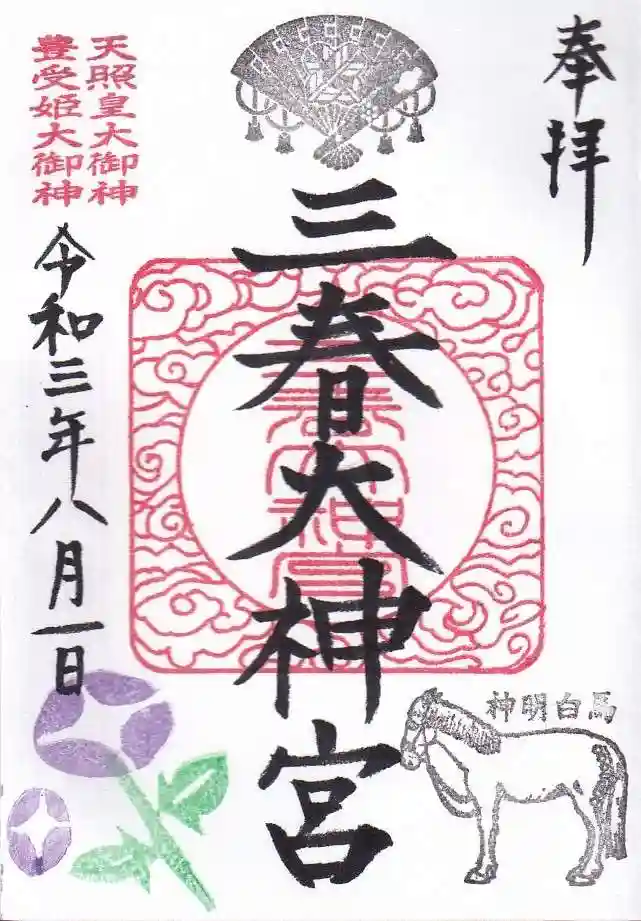 奉拝
三春大神宮
天照皇大御神
豊受姫大御神
令和三年八月一日
神明白馬